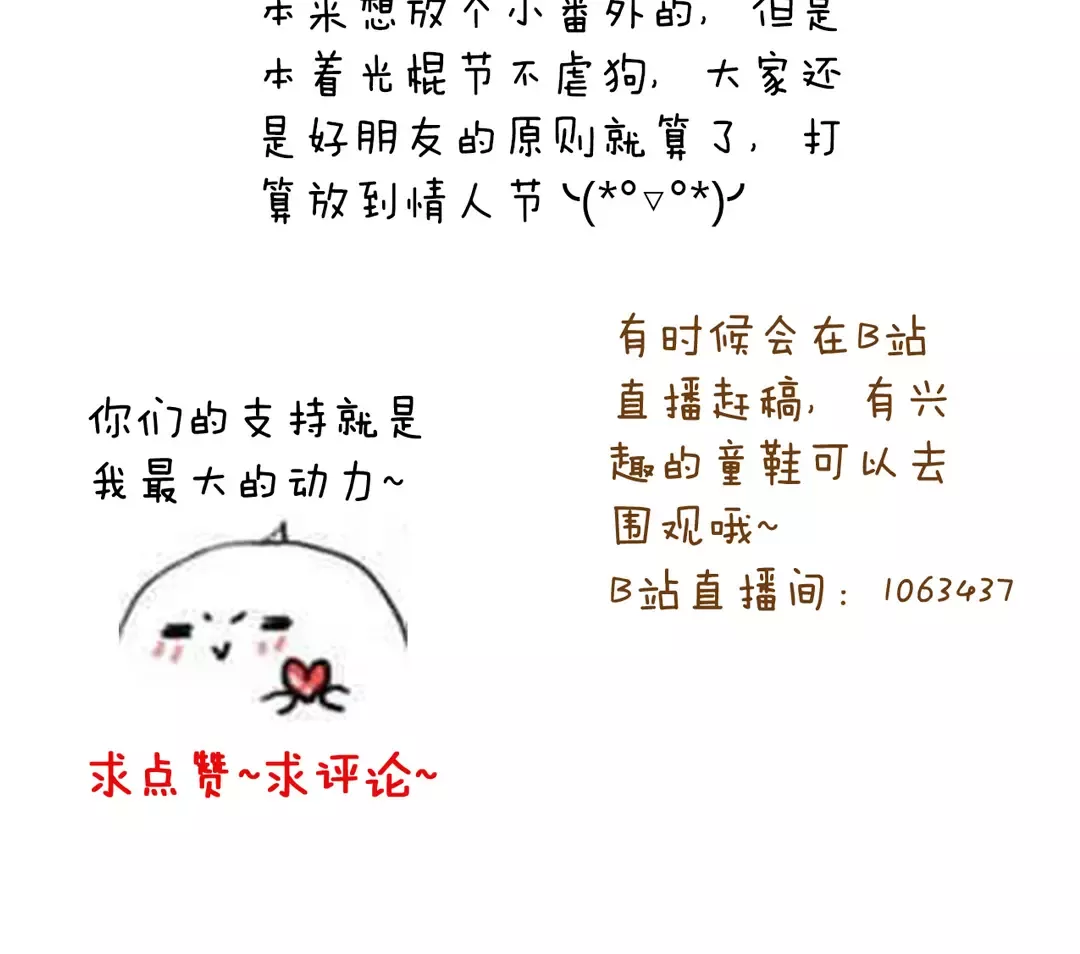 本来想放个小番外的，但是
本着光棍节不虐狗，大家还
是好朋友的原则就算了，打
算放到情人节╰(*°▽°*)╯
有时候会在B站
直播赶稿，有兴
趣的童鞋可以去
围观哦~
B站直播间：1063437
你们的支持就是
我最大的动力~
求点赞~求评论~